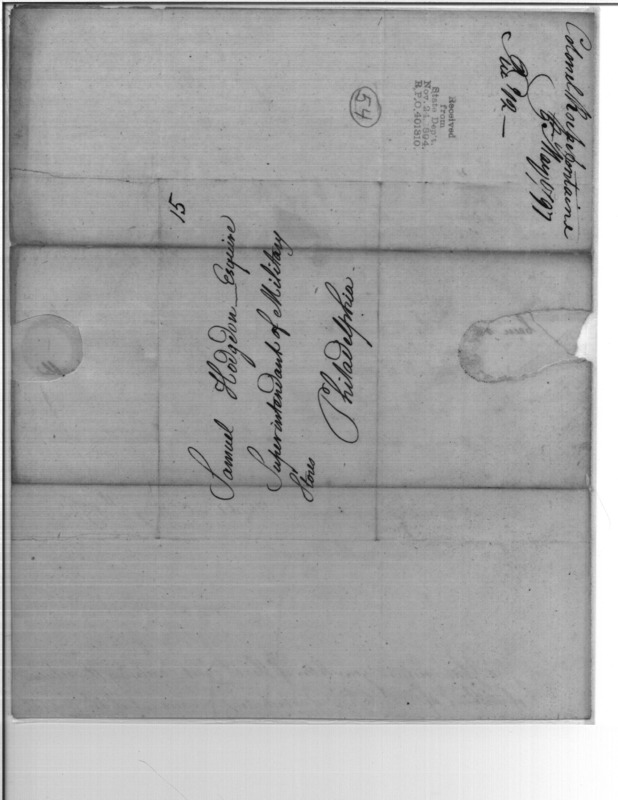 Colonel Rochefontaine
5 May 1797
Received
from
State Dep't.
Nov. 24, 1894.
R.P.O. 401810.
54
15
Samuel Hodgdon Esquire
Superintendant of Military
Stores
Philadelphia.